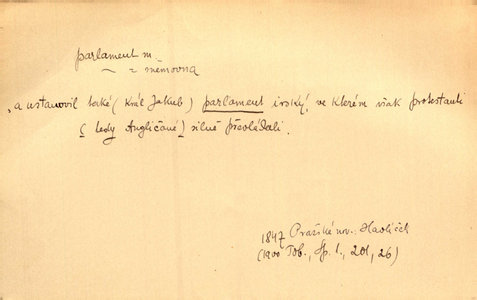 parlament m.
~ = sněmovna
„a ustanovil také (Král Jakub) parlament irský, ve kterém však protestanti
( tedy Angličané) silně převládali.
1847 Pražské nov., Havlíček
(1900 Tob., Sp. 1, 201, 26)